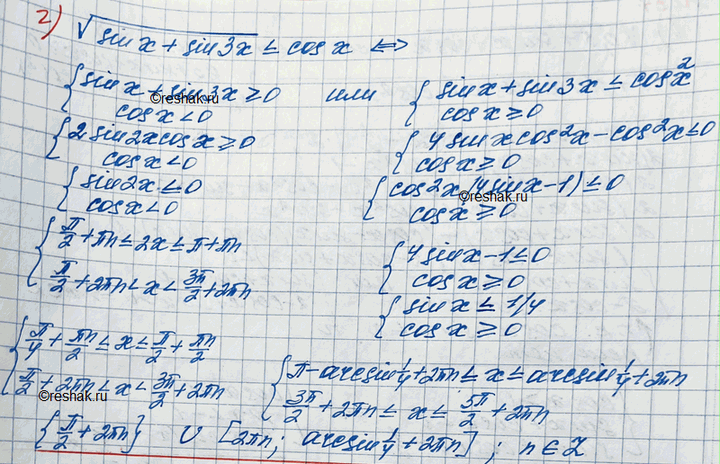 2) √(sin x + sin 3x) ≤ cos x ⇔
{ sin x + sin 3x ≥ 0
cos x < 0
или
{ sin x + sin 3x ≤ cos x²
cos x ≥ 0
©reshak.ru
{ 2 sin 2x cos x ≥ 0
cos x < 0
{ 4 sin x cos²x − cos²x ≤ 0
cos x ≥ 0
{ sin 2x ≤ 0
cos x < 0
{ cos²x (4 sin x − 1) ≤ 0
cos x ≥ 0
©reshak.ru
{ π/2 + πn ≤ 2x ≤ π + πn
π/2 + 2πn < x < 3π/2 + 2πn
{ 4 sin x − 1 ≤ 0
cos x ≥ 0
{ sin x ≤ 1/4
cos x ≥ 0
{ π/4 + πn/2 ≤ x ≤ π/2 + πn/2
π/2 + 2πn < x < 3π/2 + 2πn
{ π − arcsin 1/4 + 2πn ≤ x ≤ arcsin 1/4 + 2πn
3π/2 + 2πn ≤ x ≤ 5π/2 + 2πn
©reshak.ru
{π/2 + 2πn} ∪ [2πn; arcsin 1/4 + 2πn]; n ∈ Z